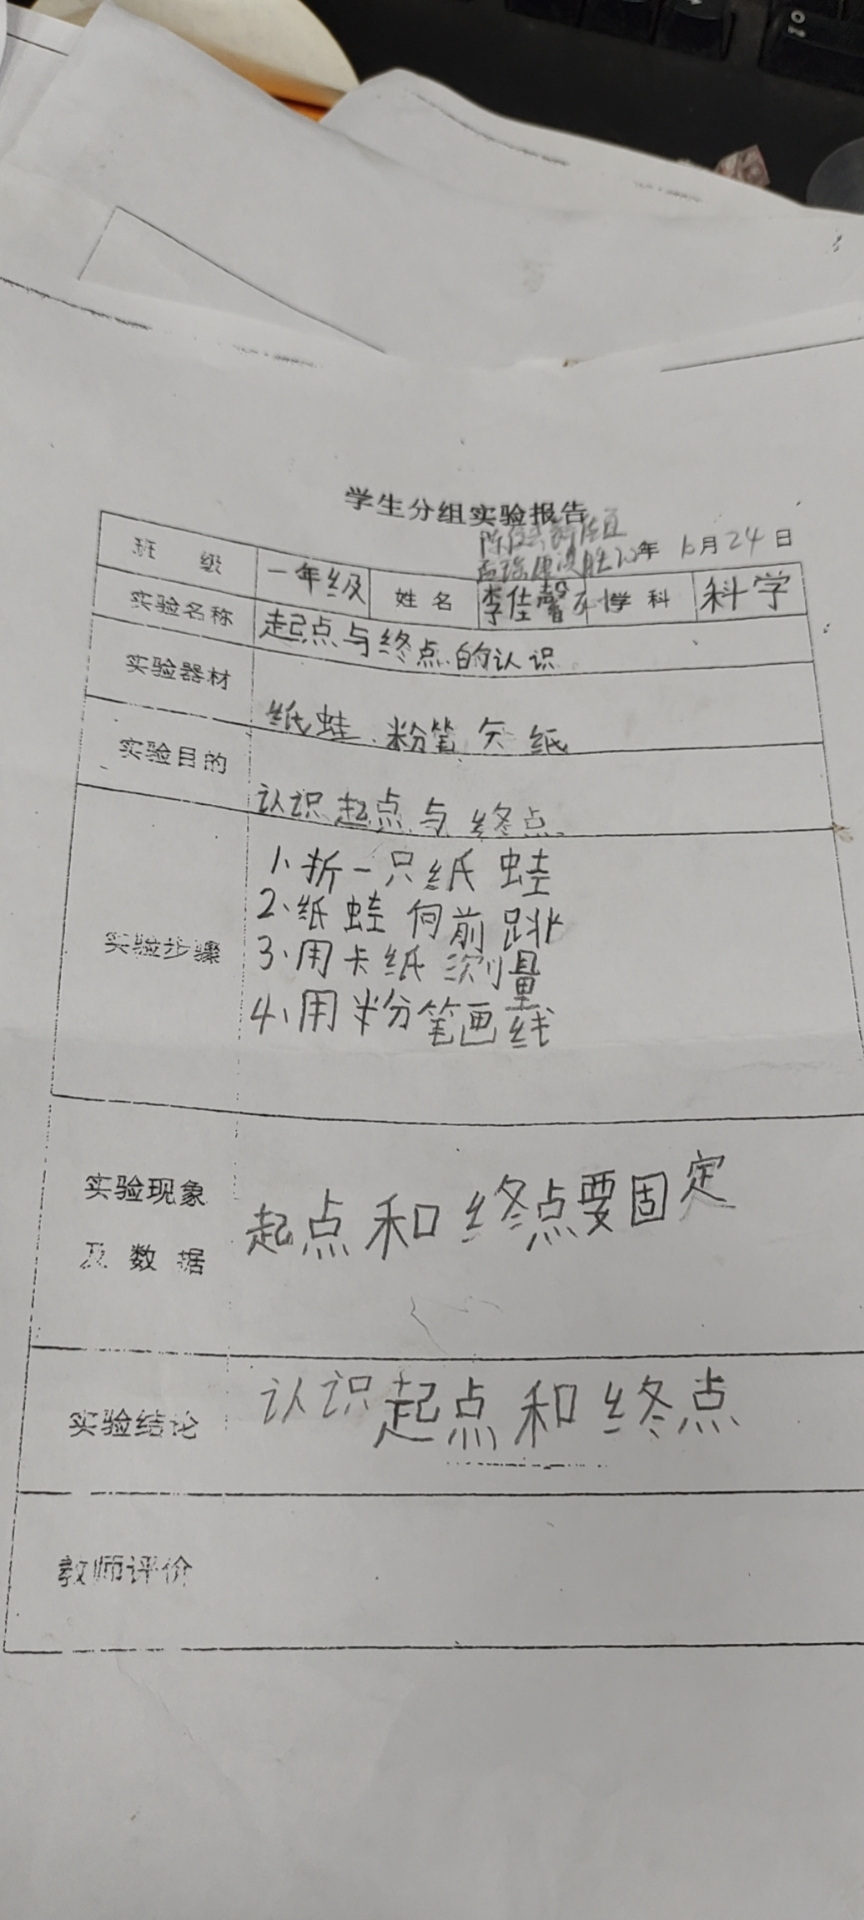 学生分组实验报告
年 10月24日
班 级 一年级 姓 名 李佳馨 学 科 科学
实验名称 起点与终点的认识
实验器材 纸蛙、粉笔 纸
实验目的 认识起点与终点
实验步骤
1、折一只纸蛙
2、纸蛙向前跳
3、用卡纸测量
4、用粉笔画线
实验现象
及数据
起点和终点要固定
实验结论 认识起点和终点
教师评价